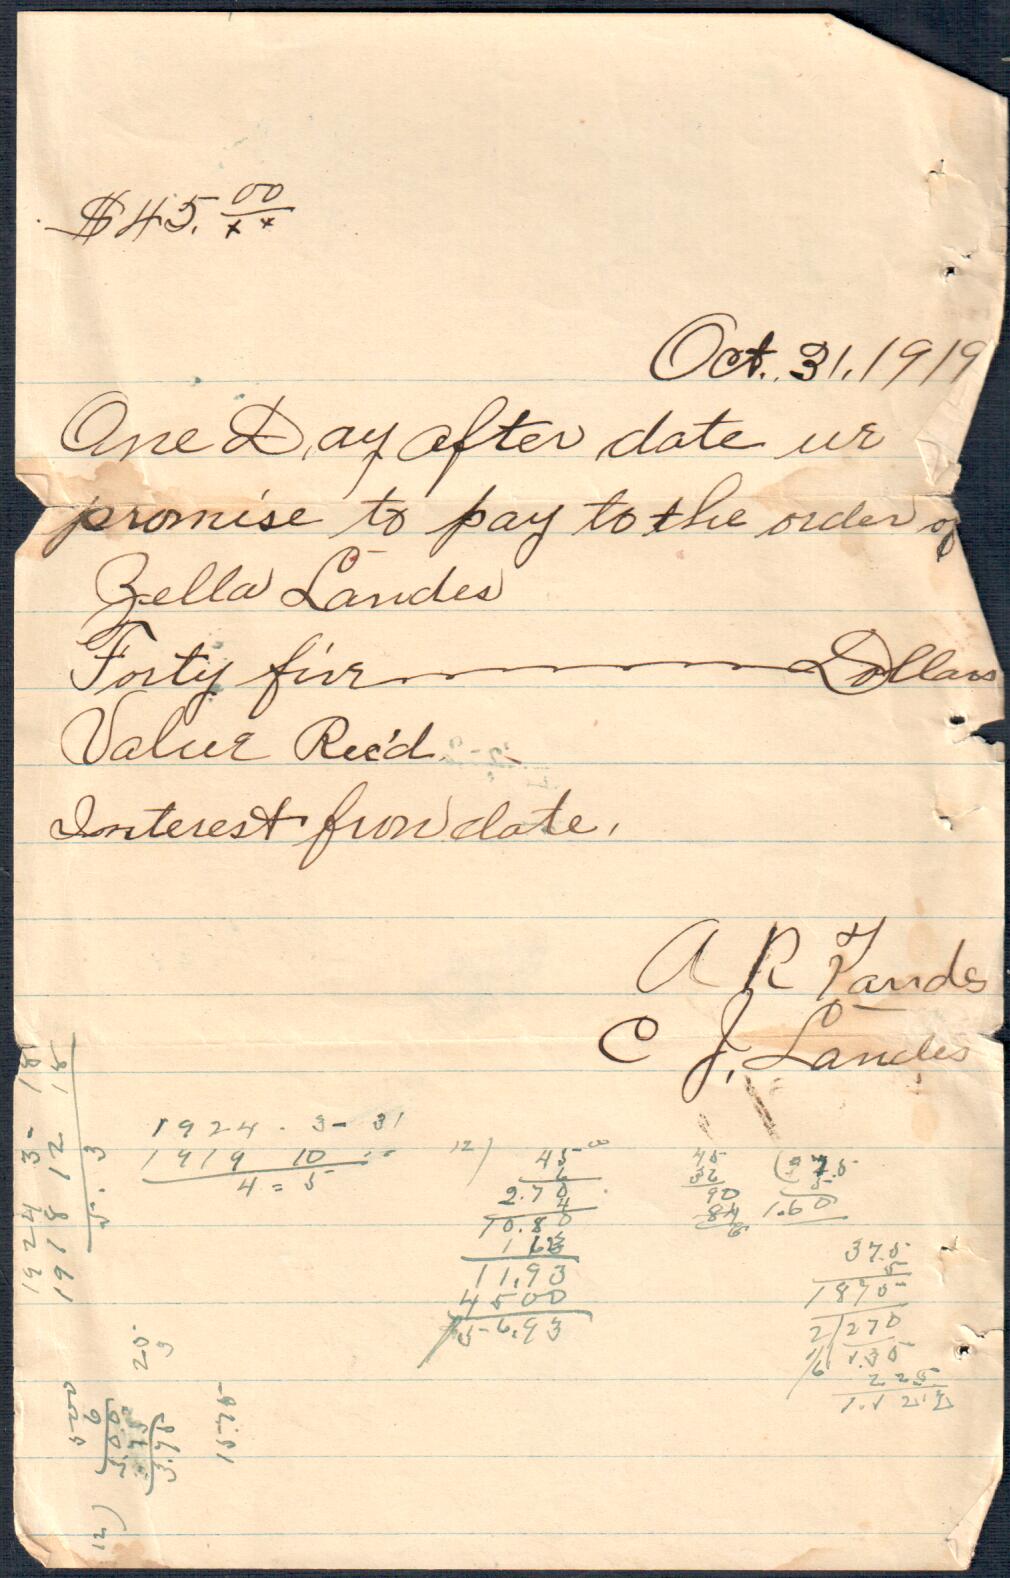 $45.00/xx
Oct. 31, 1919
One Day after date we
promise to pay to the order of
Zella Landes
Forty five Dollars
Value Rec'd
Interest from date.
A R Landes
C J. Landes
1924 - 3 - 31
1919 10
4 = 5
12) 45.00
6
2.70
4
10.80
1 13
11.93
4500
56.93
45
32
90
84
6
37.5
5
1.60
37.5
5
1875
2/270
1.35
225
1924 3 - 18
1918 12 18
5. 3
5200
6
25
3.98
15.75
12)